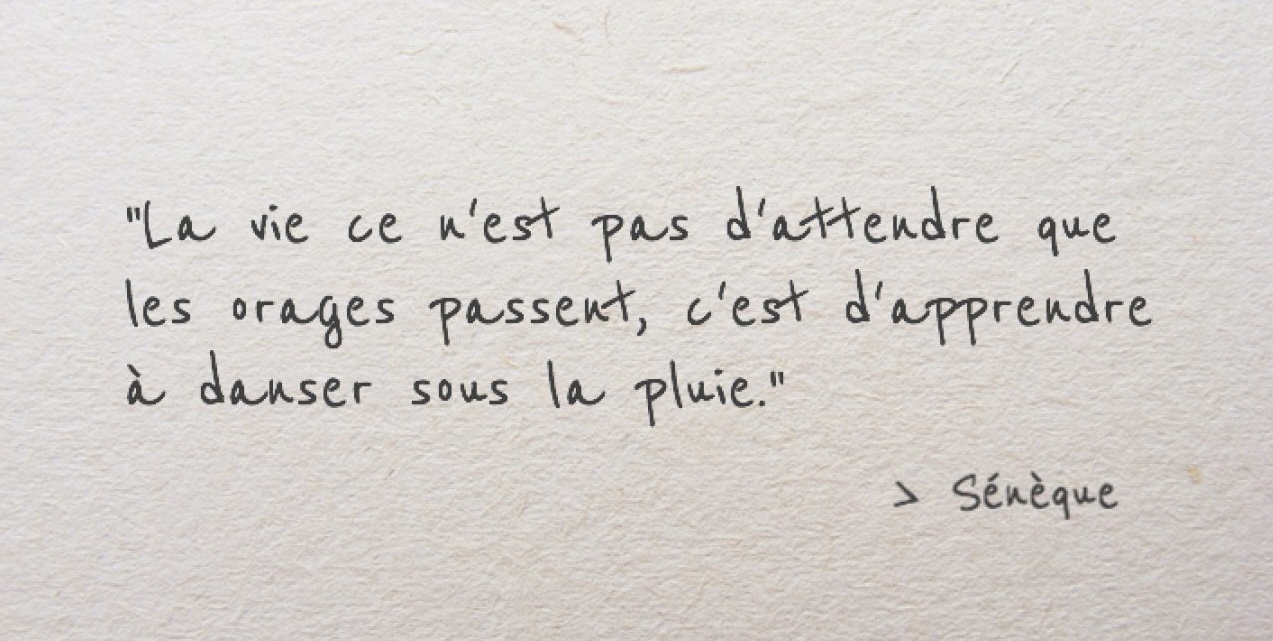 "La vie ce n'est pas d'attendre que
les orages passent, c'est d'apprendre
à danser sous la pluie."
> Sénèque